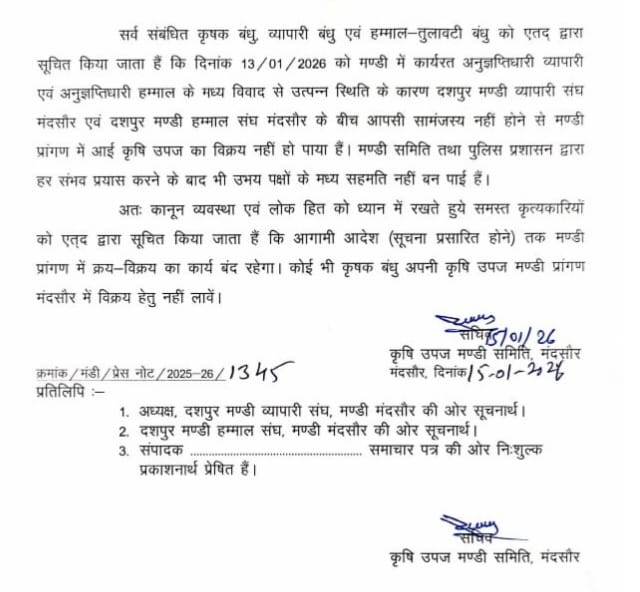 सर्व संबंधित कृषक बंधु, व्यापारी बंधु एवं हम्माल–तुलावटी बंधु को एतद् द्वारा
सूचित किया जाता हैं कि दिनांक 13/01/2026 को मण्डी में कार्यरत अनुज्ञप्तिधारी व्यापारी
एवं अनुज्ञप्तिधारी हम्माल के मध्य विवाद से उत्पन्न स्थिति के कारण दशपुर मण्डी व्यापारी संघ
मंदसौर एवं दशपुर मण्डी हम्माल संघ मंदसौर के बीच आपसी सामंजस्य नहीं होने से मण्डी
प्रांगण में आई कृषि उपज का विक्रय नहीं हो पाया हैं। मण्डी समिति तथा पुलिस प्रशासन द्वारा
हर संभव प्रयास करने के बाद भी उभय पक्षों के मध्य सहमति नहीं बन पाई हैं।
अतः कानून व्यवस्था एवं लोक हित को ध्यान में रखते हुये समस्त कृत्यकारियों
को एत्द द्वारा सूचित किया जाता हैं कि आगामी आदेश (सूचना प्रसारित होने) तक मण्डी
प्रांगण में क्रय–विक्रय का कार्य बंद रहेगा। कोई भी कृषक बंधु अपनी कृषि उपज मण्डी प्रांगण
मंदसौर में विक्रय हेतु नहीं लावें।
सचिव 15/01/26
कृषि उपज मण्डी समिति, मंदसौर
क्रमांक/मंडी/प्रेस नोट/2025–26/1345 मंदसौर, दिनांक 15-01-2026
प्रतिलिपि :–
1. अध्यक्ष, दशपुर मण्डी व्यापारी संघ, मण्डी मंदसौर की ओर सूचनार्थ।
2. दशपुर मण्डी हम्माल संघ, मण्डी मंदसौर की ओर सूचनार्थ।
3. संपादक ........................................................ समाचार पत्र की ओर निःशुल्क
प्रकाशनार्थ प्रेषित हैं।
सचिव
कृषि उपज मण्डी समिति, मंदसौर